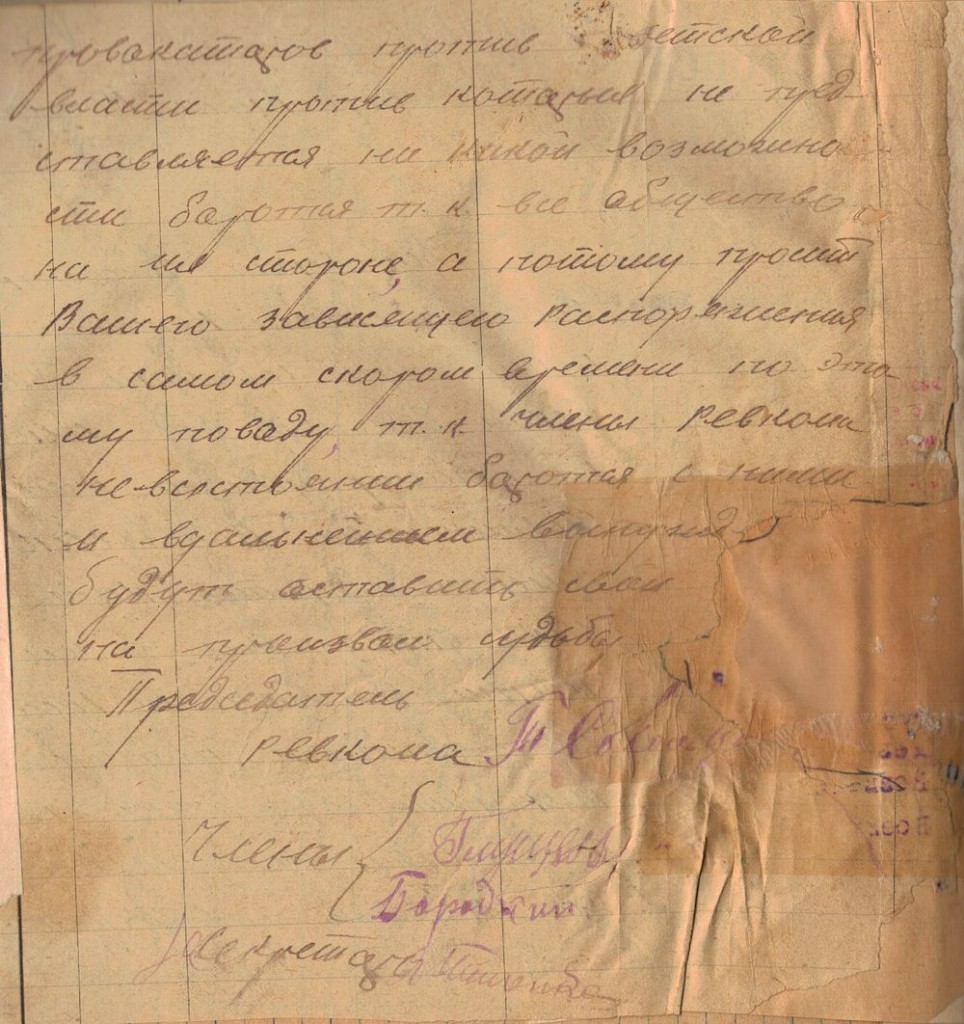 провакатаров против
власти против которых не пред-
ставляется ни какой возможно-
сти баротся т.к. все общество
на их стороне, а потому просит
Вашего зависящего распоряжения
в самом скором времени по это-
му поваду, т.к. члены Ревкома
невсостоянии баротся с ними
и вдальнейшем
будут аставить свои
на произвол судьбы
Председатель
Ревкома
Члены
Секретарь